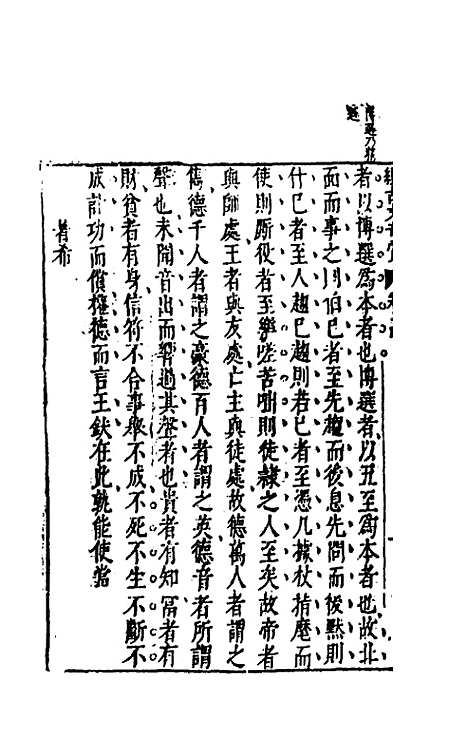 博選乃於
者以博選爲本者也博選者以五至爲本者也故北
面而事之則伯己者至先趨而後息先問而後默則
什己者至人趨己趨則若己者至憑几據杖指麾而
使則厮役者至樂嗟苦咄則徒隸之人至矣故帝者
與師處王者與友處亡主與徒處故德萬人者謂之
雋德千人者謂之豪德百人者謂之英德音者所謂
聲也未聞音出而響過其聲者也貴者有知富者有
財貧者有身信符不合事舉不成不死不生不斷不
成計功而償權德而言王鈇在此孰能使當
著希